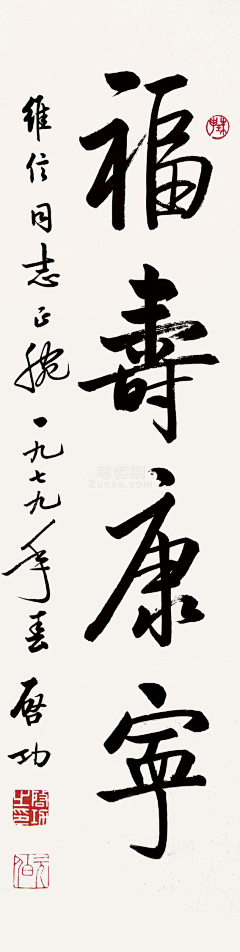 福壽康寧
維信同志正腕一九七九年春 啓功
尊客網
Zunke.com